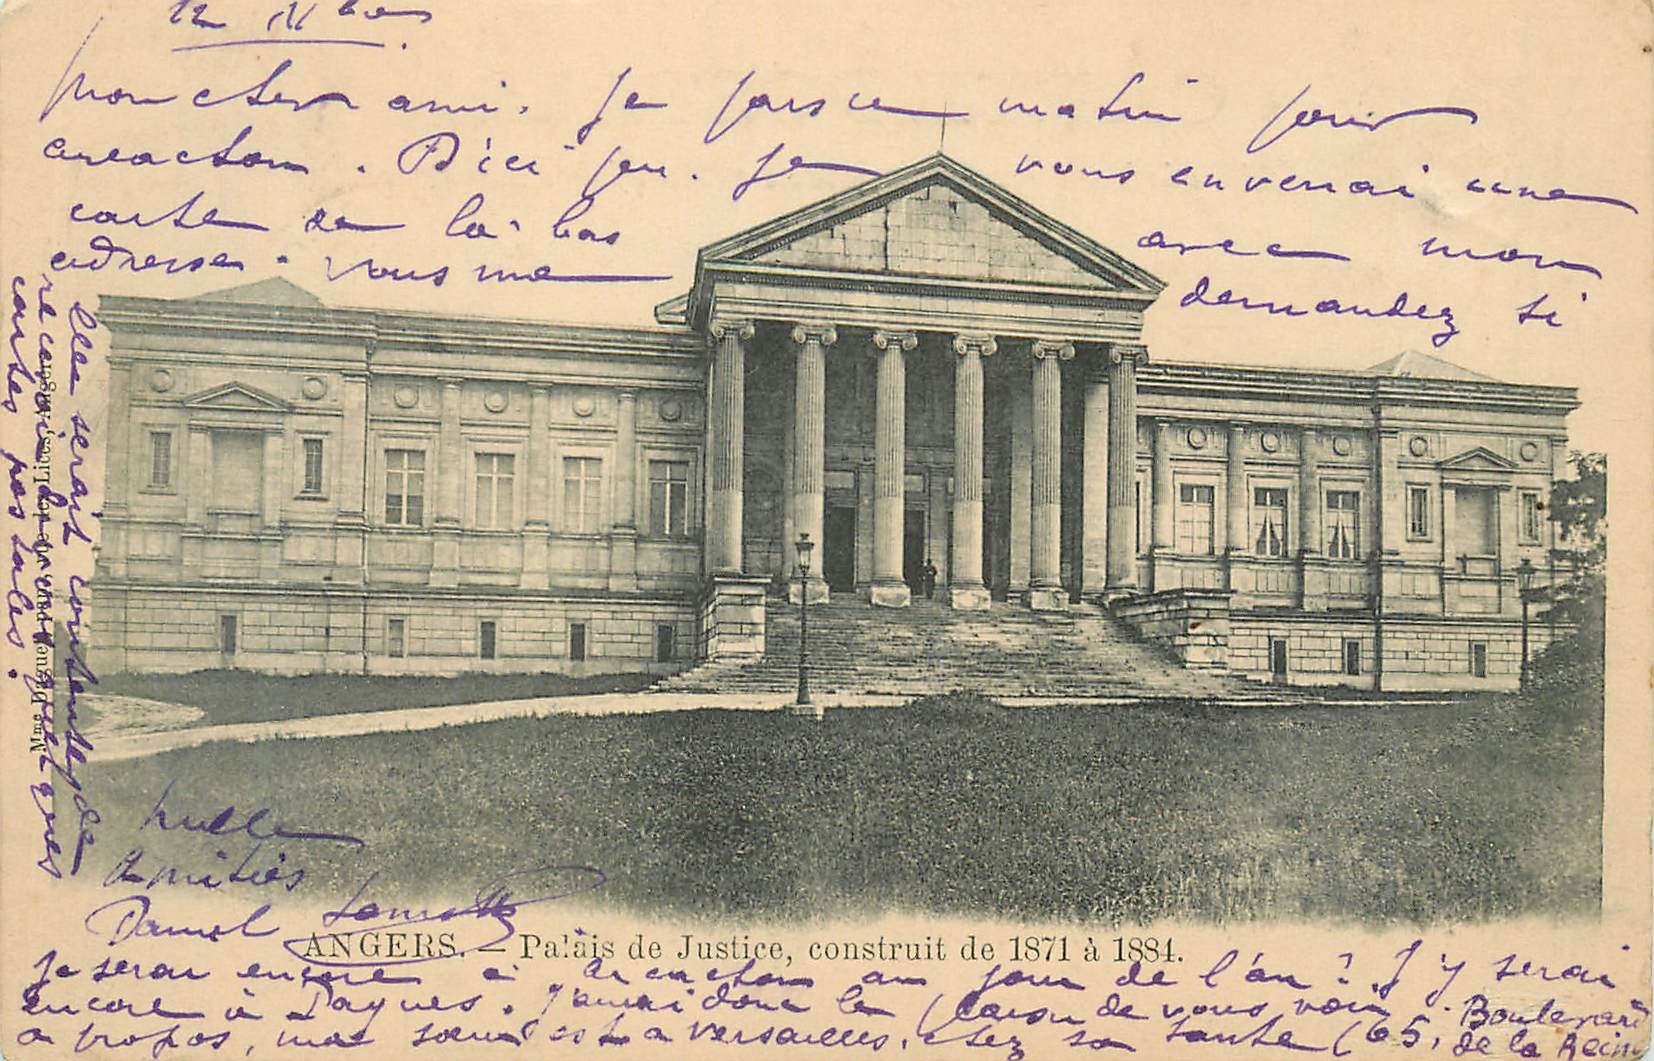 12 IX
Mon cher ami. Je pars ce matin pour
Arcachon. D'ici peu. Je vous enverrai une
carte de là-bas avec mon
adresse. Vous me demandez si
elle serait contente de
recevoir quelques
cartes postales.
Mille
Amitiés
Daniel
ANGERS. — Palais de Justice, construit de 1871 à 1884.
Je serai encore à Arcachon au jour de l'an? J'y serai
encore à Pâques. J'aurai donc le plaisir de vous voir. Boulevard
a propos, ma sœur est à Versailles, chez sa tante (65, de la Reine